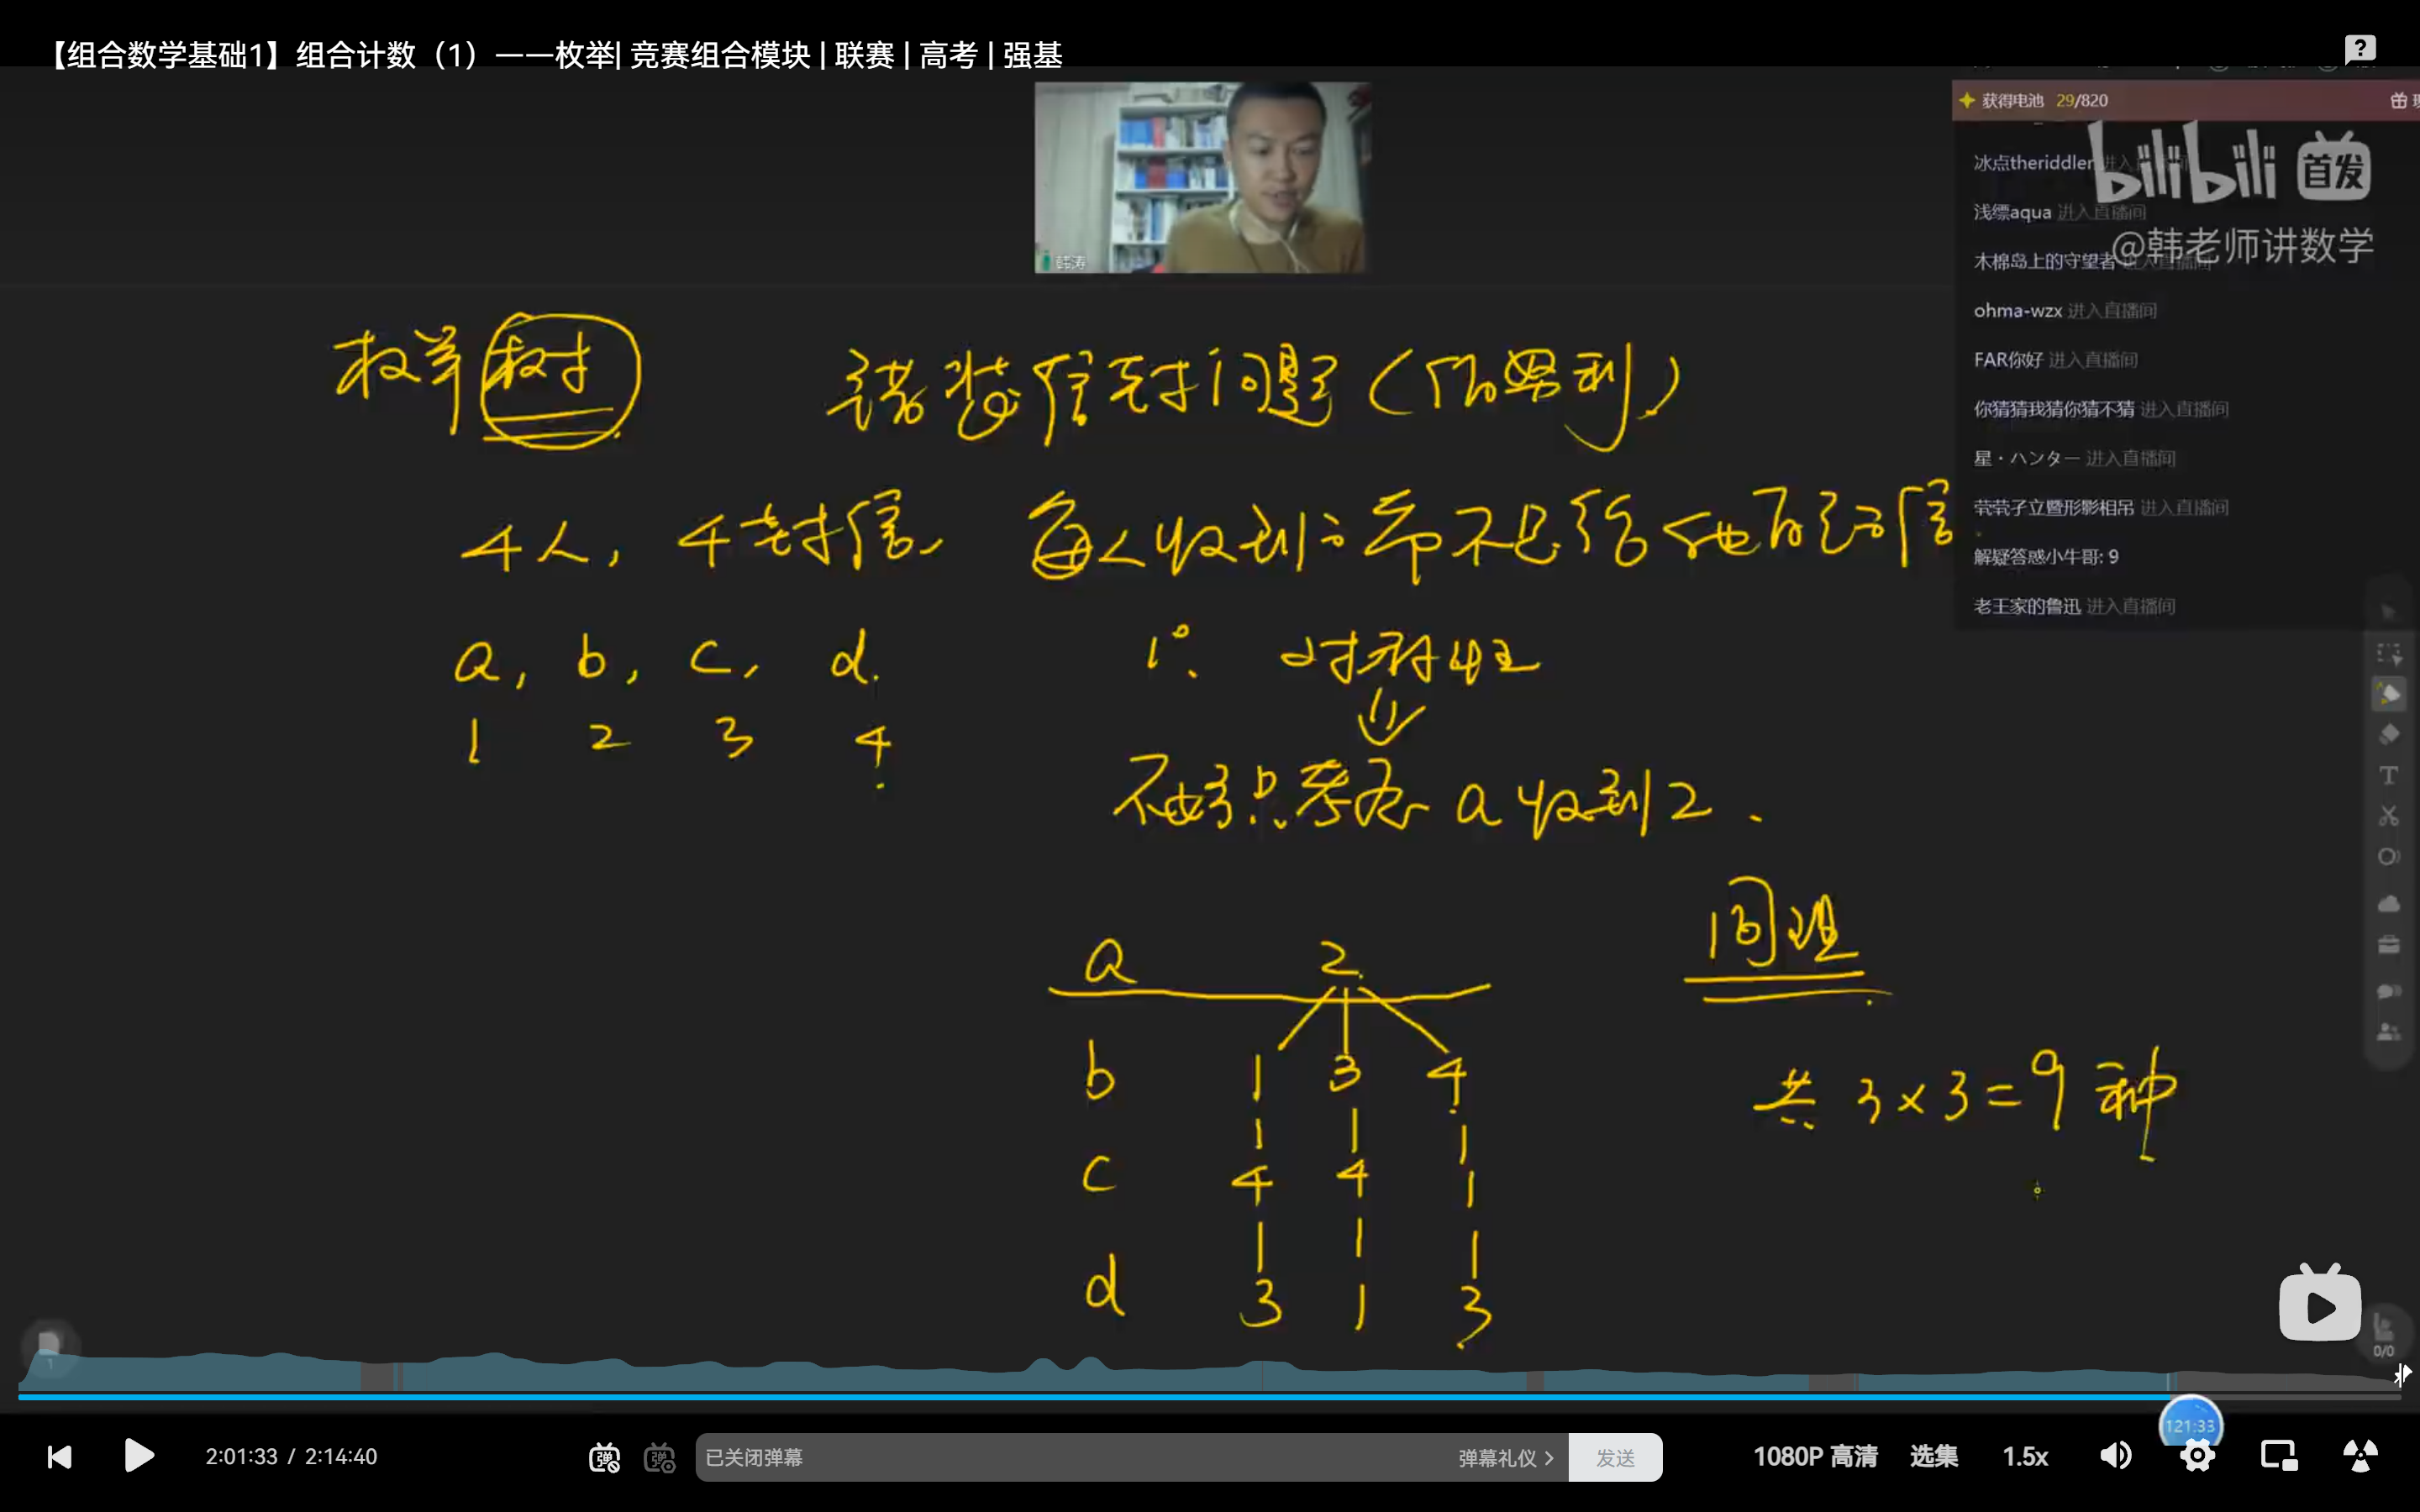 【组合数学基础1】组合计数（1）——枚举| 竞赛组合模块 | 联赛 | 高考 | 强基
获得电池 29/820
bilibili 首发
@韩老师讲数学
冰点theriddler 进入
浅缥aqua 进入直播间
木棉岛上的守望者 进入直播间
ohma-wzx 进入直播间
FAR你好 进入直播间
你猜猜我猜你猜不猜 进入直播间
星・ハンター 进入直播间
茕茕孑立暨形影相吊 进入直播间
解疑答惑小牛哥: 9
老王家的鲁迅 进入直播间
韩涛
枚举树
错装信封问题（伯努利）
4人, 4封信, 每人收到1部不是给他的信
a, b, c, d.
1 2 3 4
1°. 对称性
⇓
不妨只考虑 a 收到 2.
a 2
b 1 3 4
c 4 4 1
d 3 1 3
共 3×3=9 种
1
0/0
121:33
2:01:33 / 2:14:40
弹 弹
已关闭弹幕
弹幕礼仪 >
发送
1080P 高清
选集
1.5x